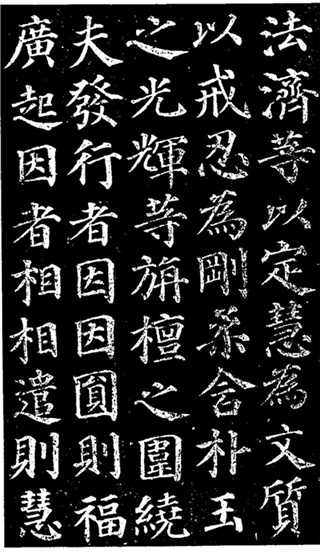 法濟等以定慧為文質
以戒忍為剛柔含朴玉
之光輝等旃檀之圍繞
夫發行者因因圓則福
廣起因者相相遣則慧